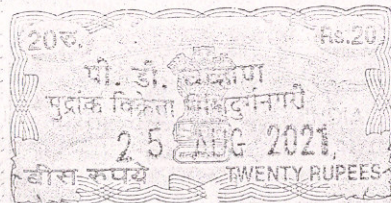 20रु. Rs.20
पी. डी.
मुद्रांक विक्रेता सिंधुदुर्गनगरी
25 AUG 2021
बीस रुपये TWENTY RUPEES